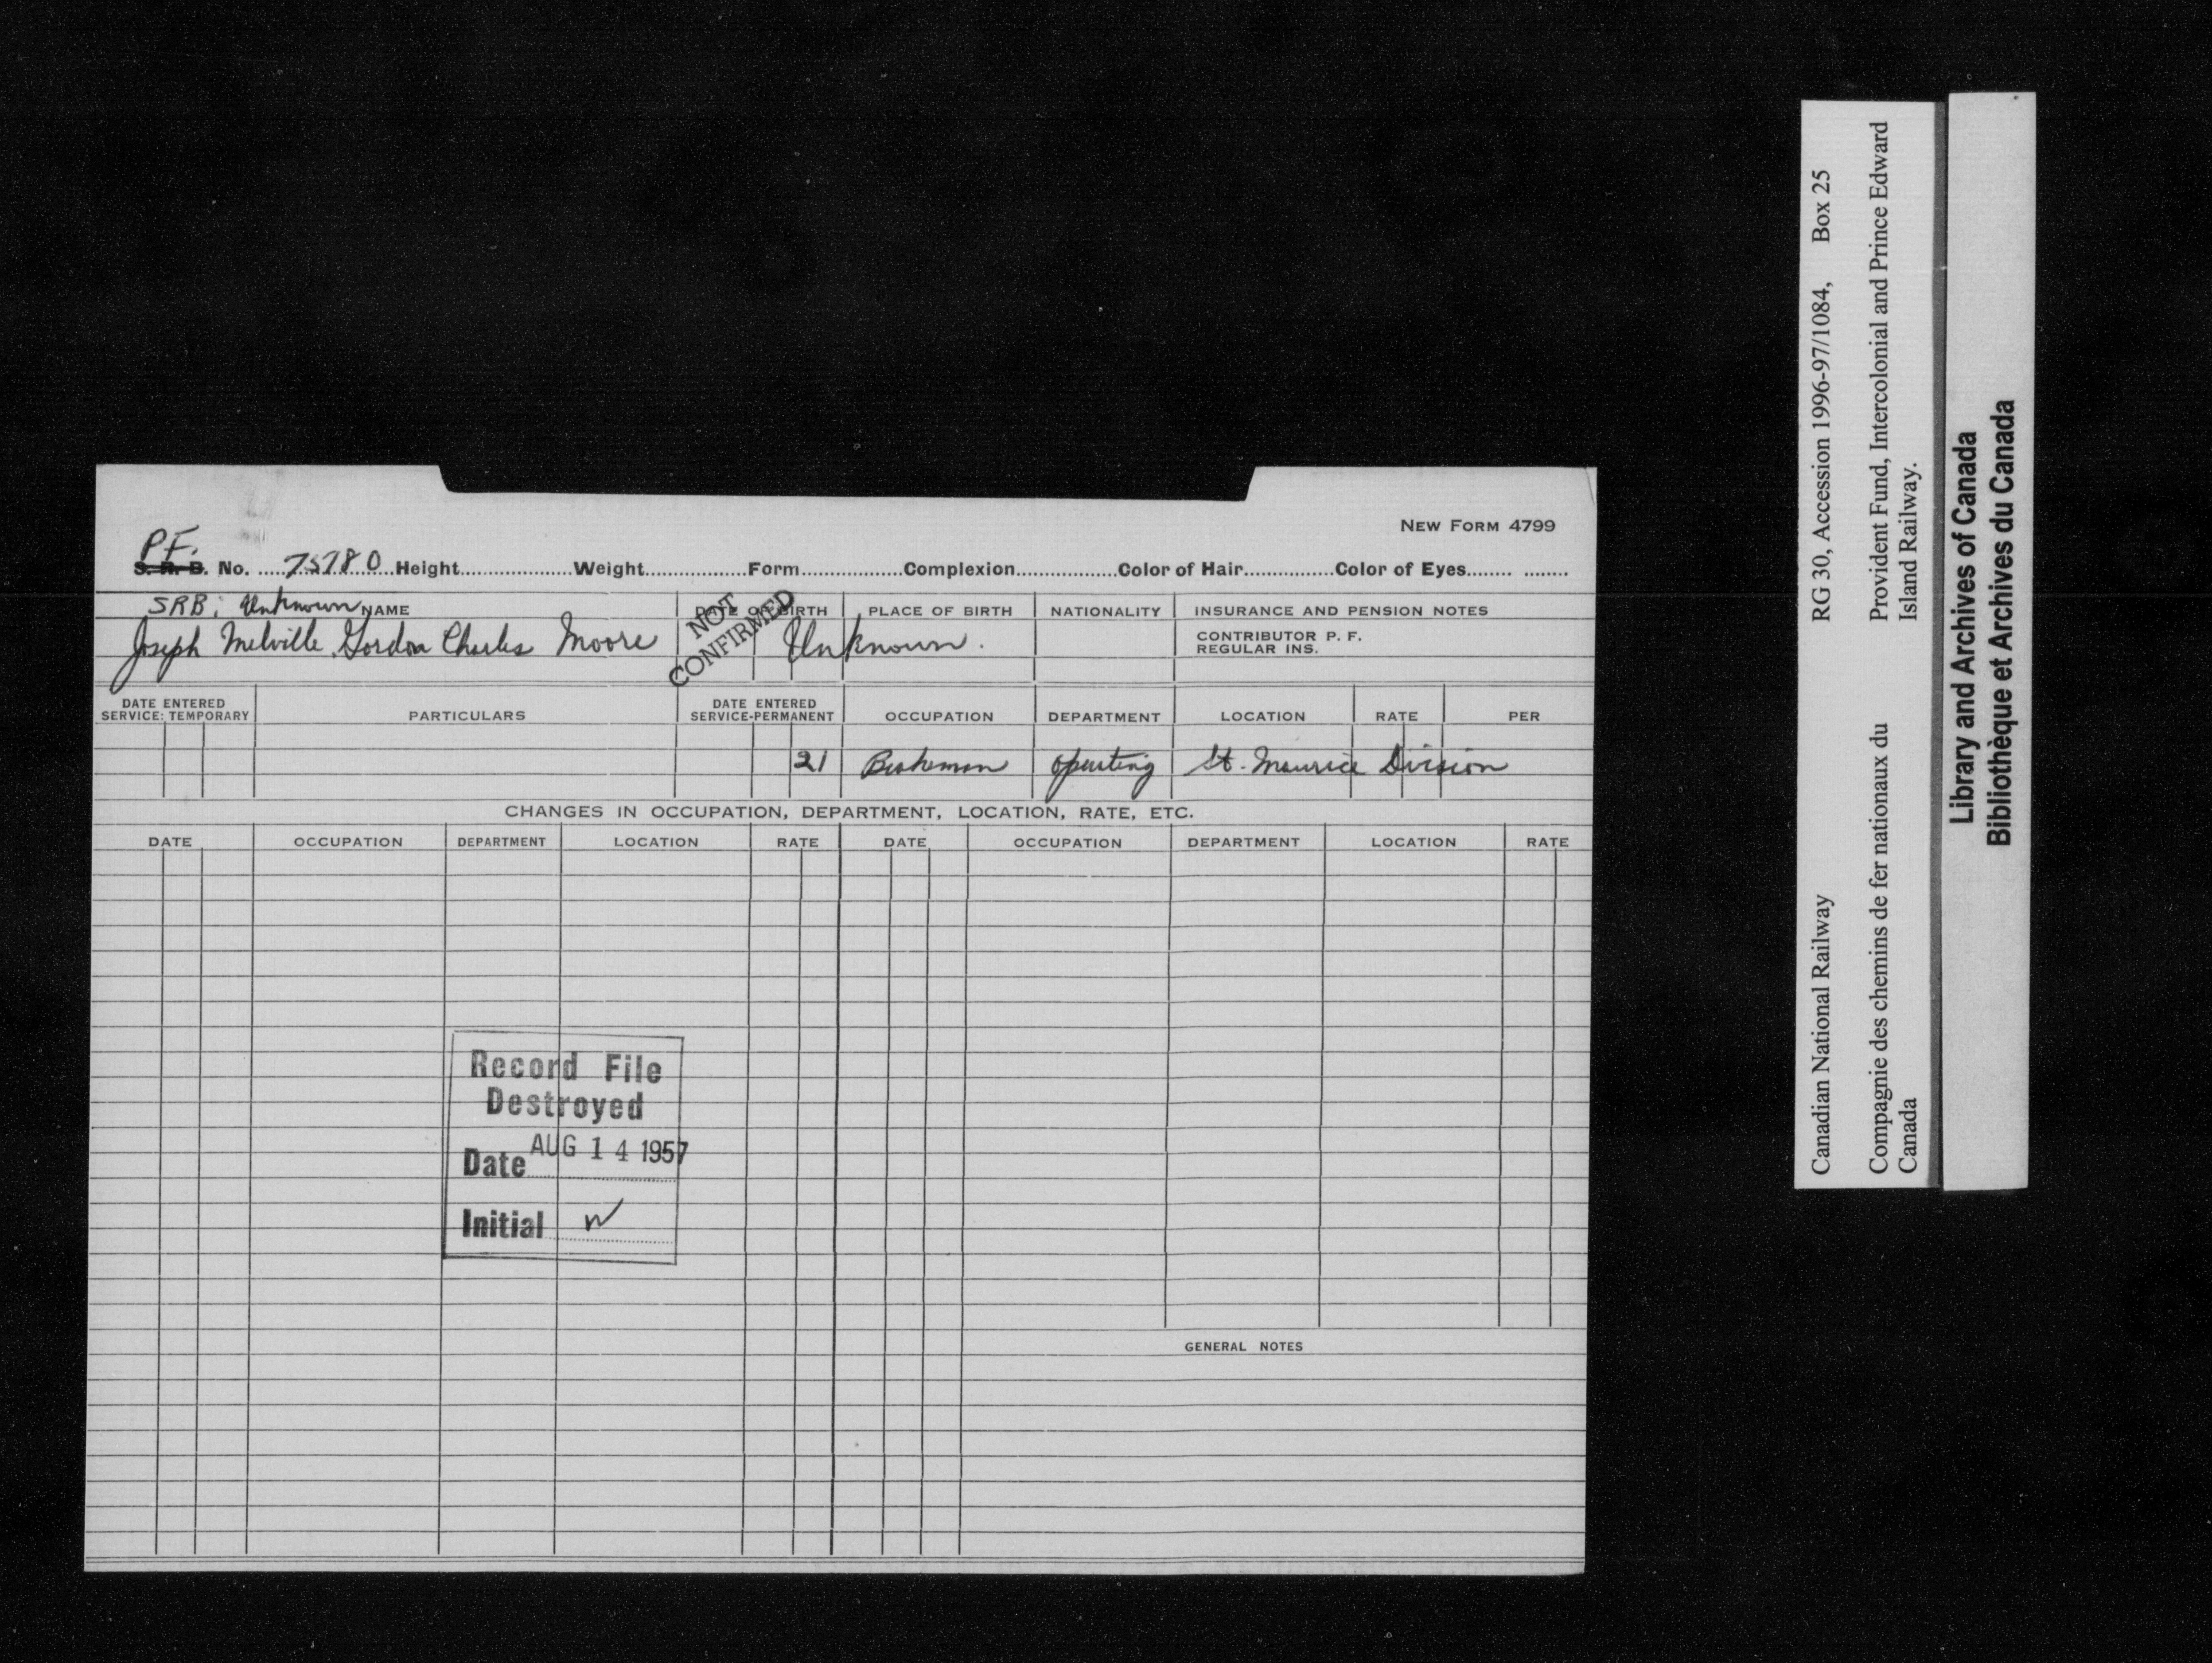 NEW FORM 4799
P.F.
S. R. B. No. 75780 Height Weight Form Complexion Color of Hair Color of Eyes
SRB: Unknown NAME DATE OF BIRTH PLACE OF BIRTH NATIONALITY INSURANCE AND PENSION NOTES
NOT CONFIRMED
Joseph Melville Gordon Charles Moore Unknown. CONTRIBUTOR P. F.
REGULAR INS.
DATE ENTERED SERVICE: TEMPORARY PARTICULARS DATE ENTERED SERVICE-PERMANENT OCCUPATION DEPARTMENT LOCATION RATE PER
21 Brakeman Operating St. Maurice Division
CHANGES IN OCCUPATION, DEPARTMENT, LOCATION, RATE, ETC.
DATE OCCUPATION DEPARTMENT LOCATION RATE DATE OCCUPATION DEPARTMENT LOCATION RATE
Record File
Destroyed
Date AUG 14 1957
Initial W
GENERAL NOTES
Canadian National Railway RG 30, Accession 1996-97/1084, Box 25
Compagnie des chemins de fer nationaux du Provident Fund, Intercolonial and Prince Edward
Canada Island Railway.
Library and Archives of Canada
Bibliothèque et Archives du Canada